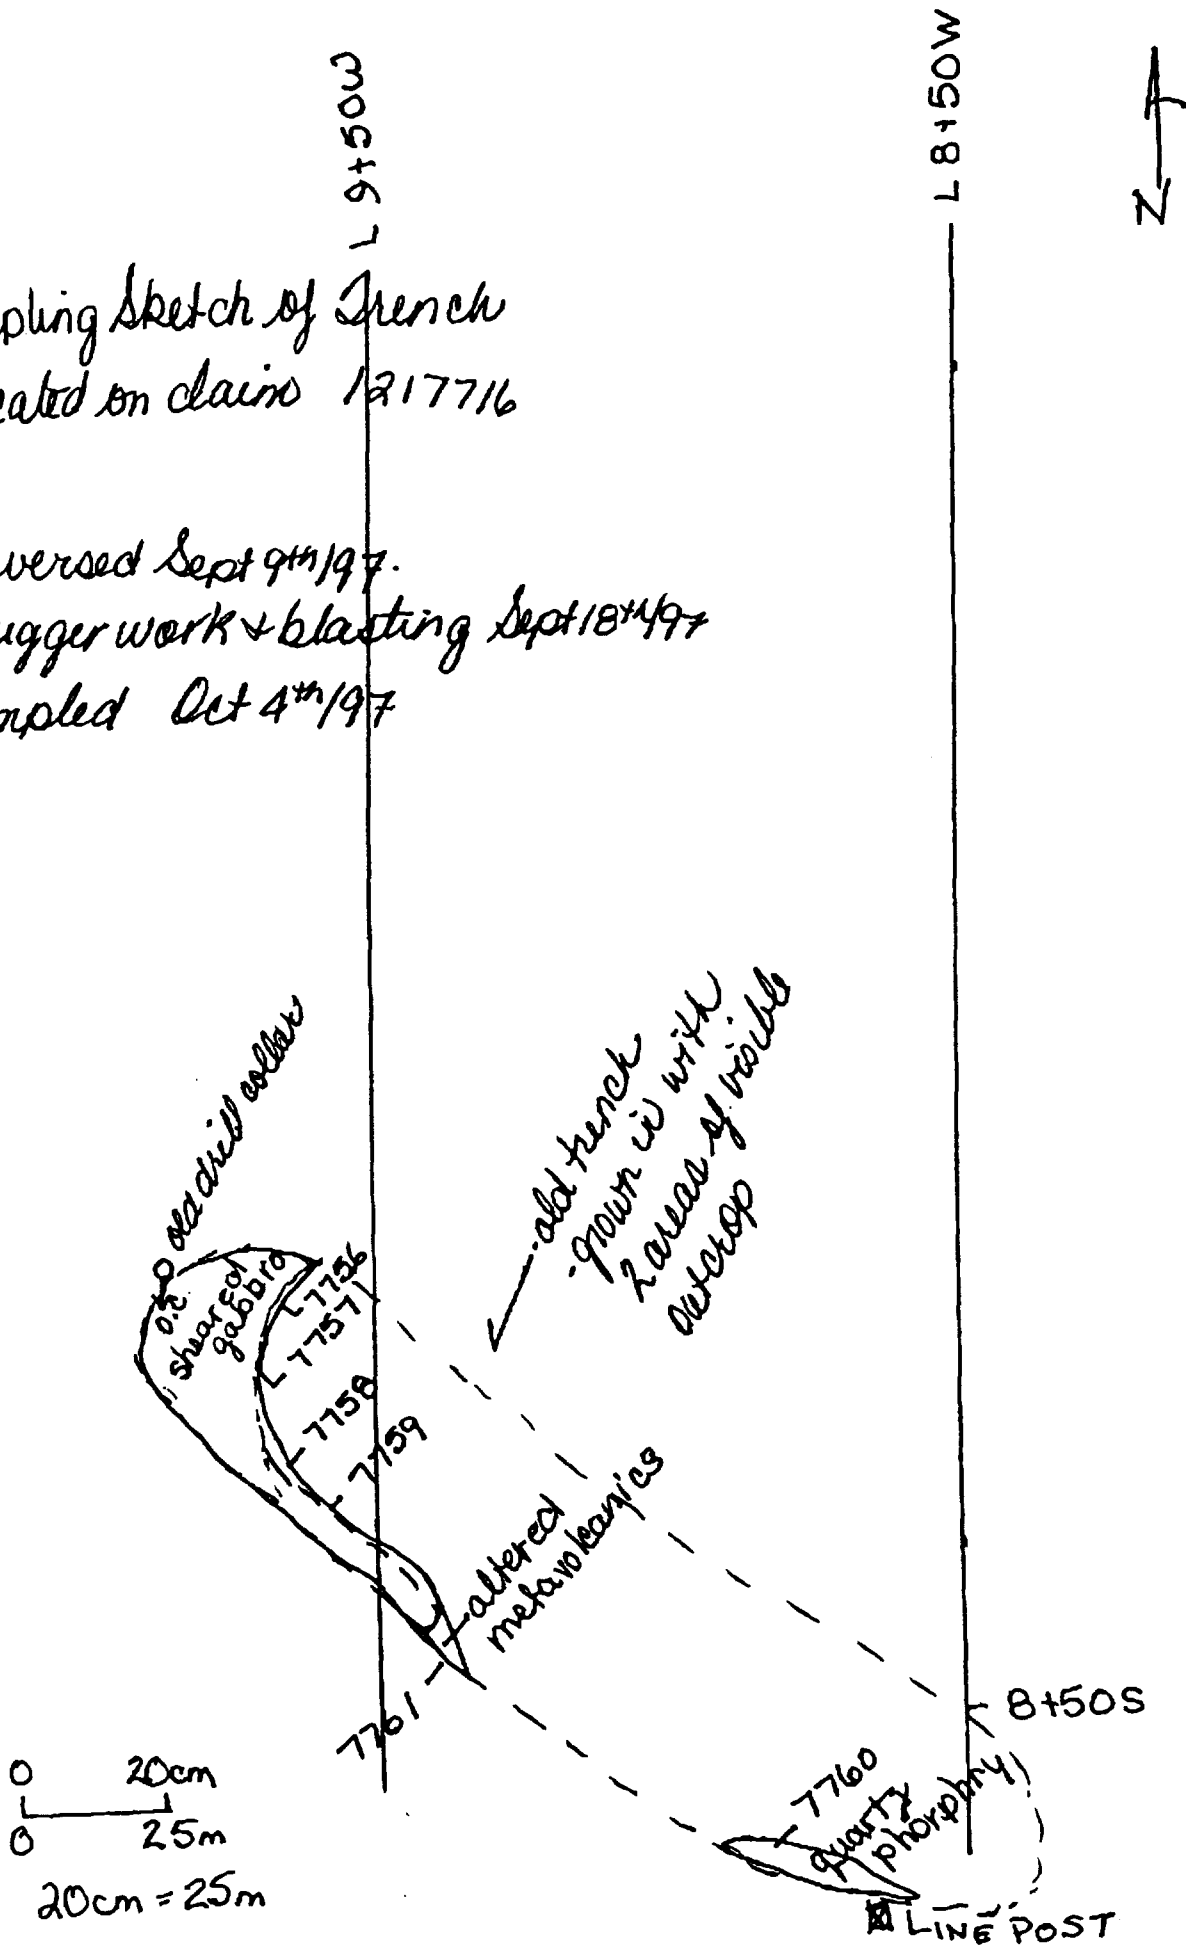 L 9+50W
L 8+50W
N
pling Sketch of Trench
cated on claim 1217716
versed Sept 9th/97.
ugger work & blasting Sept 18th/97
mpled Oct 4th/97
old drill collar
old trench
grown in with
2 areas of visible
outcrop
o.c.
sheared
gabbro
7756
7757
7758
7759
altered
metavolcanics
7761
8+50S
7760
quartz
phorphry
LINE POST
0 20cm
0 25m
20cm = 25m